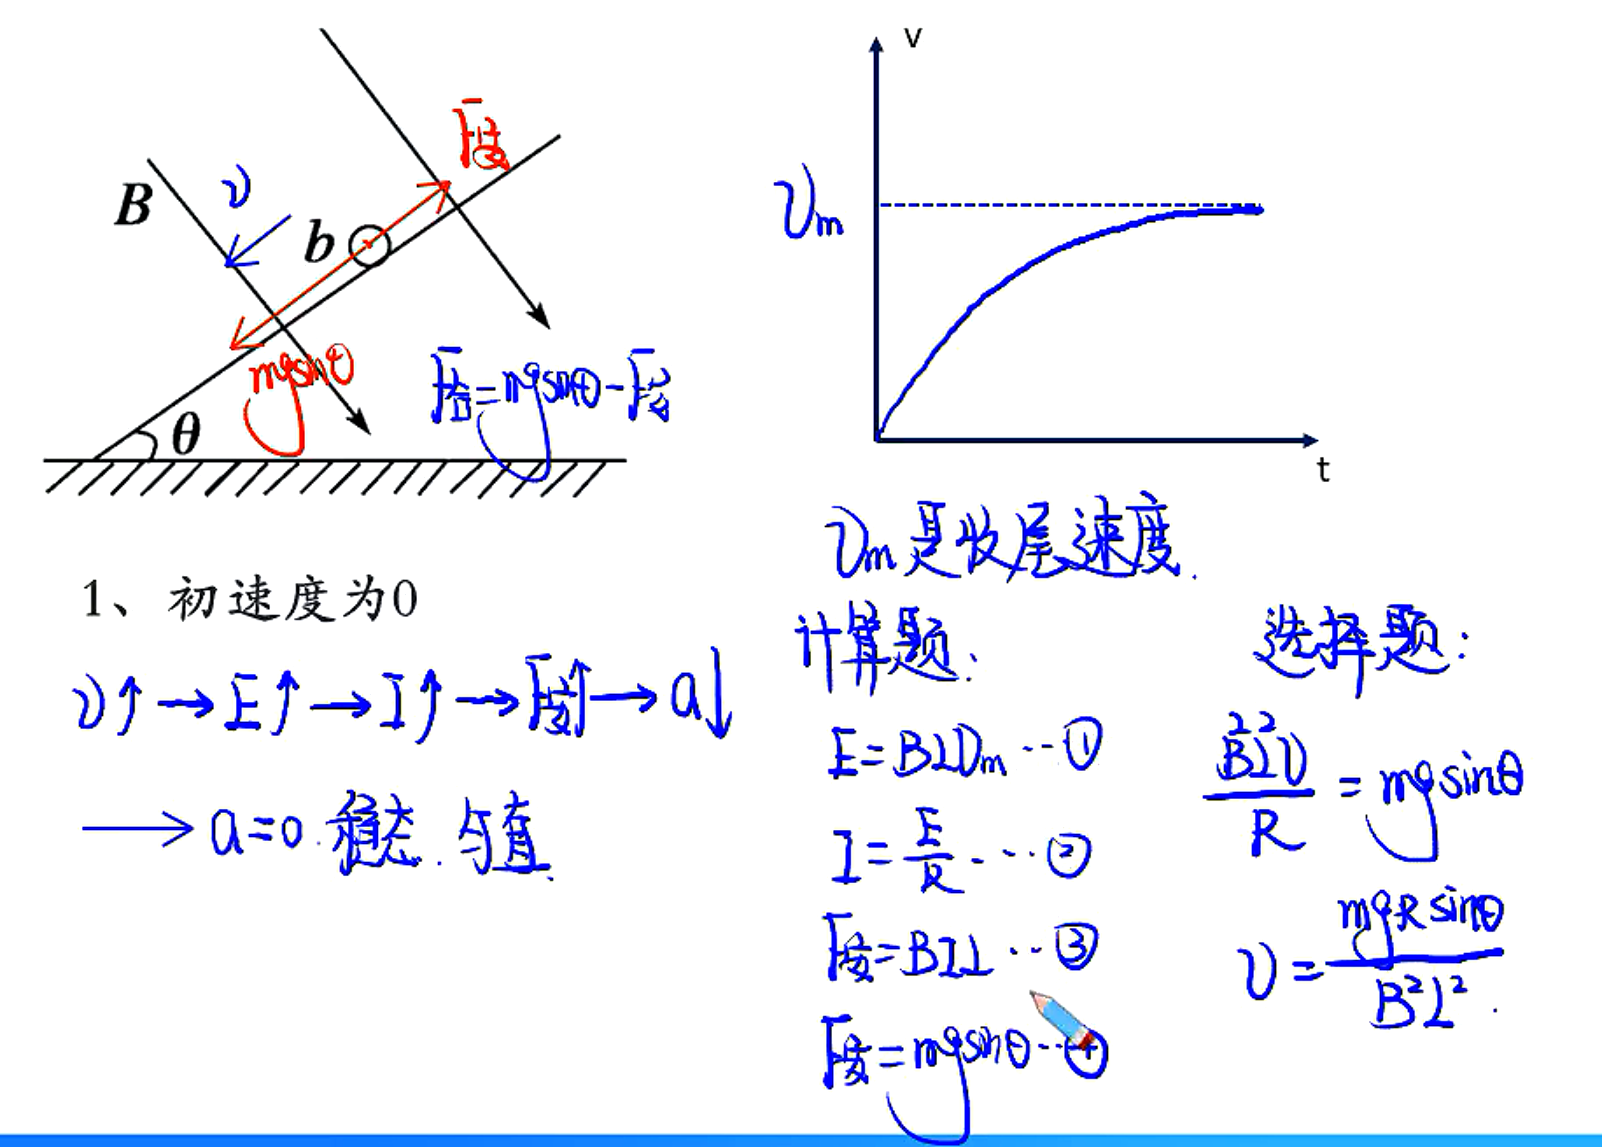 B
v
b
F安
mgsinθ
F合=mgsinθ-F安
θ
v
vm
t
1、初速度为0
v↑→E↑→I↑→F安↑→a↓
→a=0.稳态.匀值.
vm是收尾速度.
计算题:
E=BLvm…①
I=E/R…②
F安=BIL…③
F安=mgsinθ…④
选择题:
B²L²v/R=mgsinθ
v=mgRsinθ/B²L².